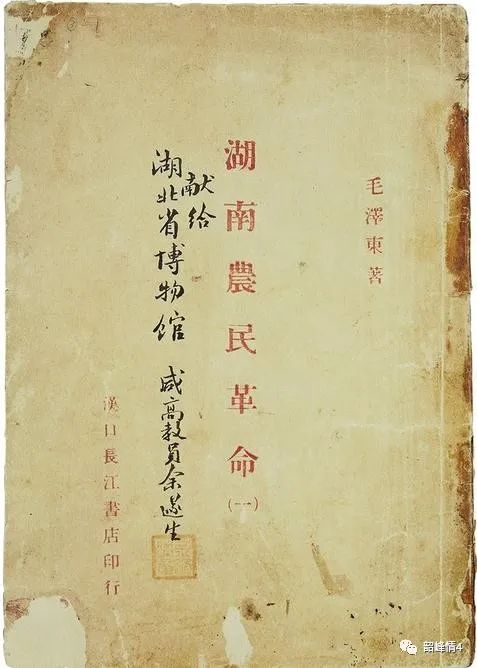 毛澤東著
湖南農民革命(一)
献给
湖北省博物馆 咸高教員余遂生
漢口長江書店印行
韶峰情4